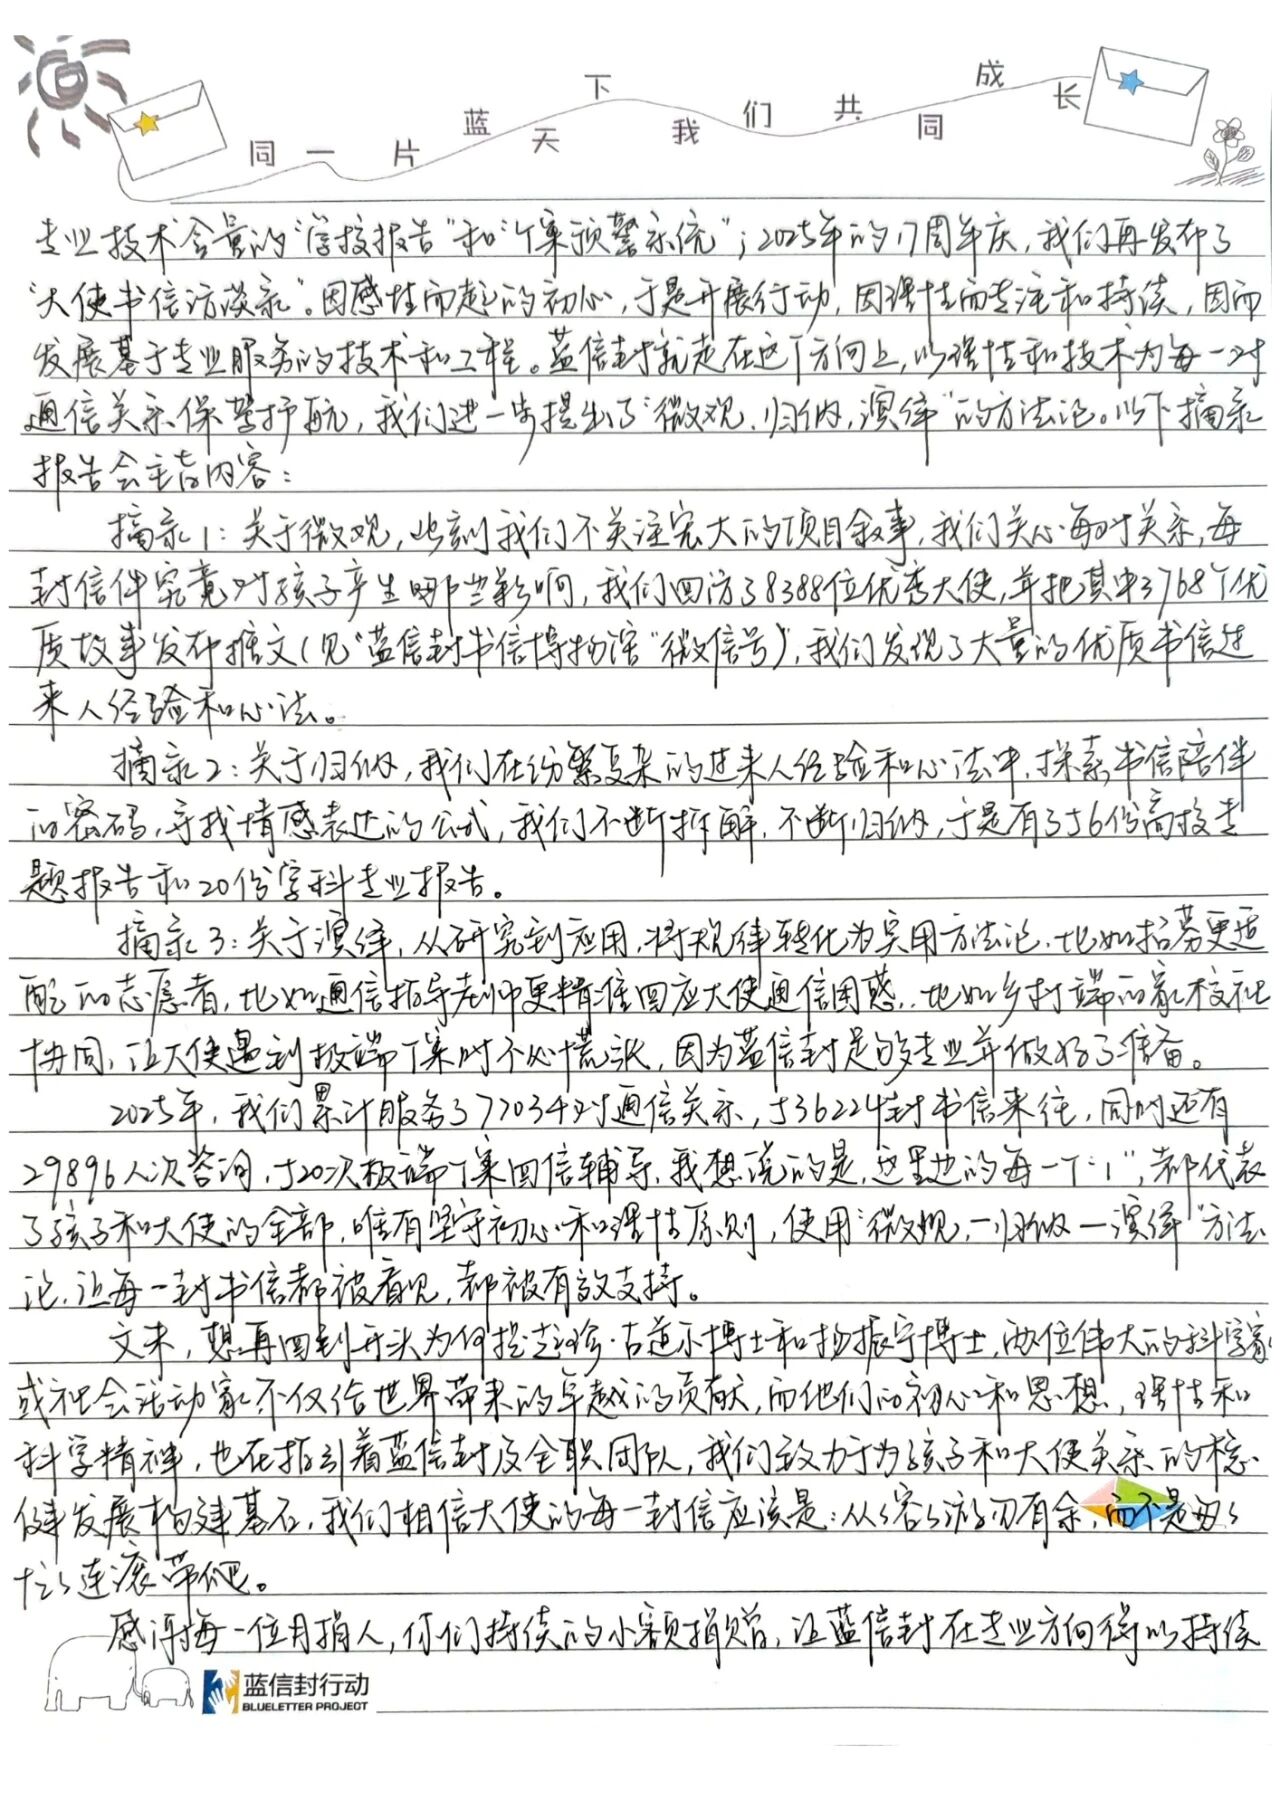 同一片蓝天下我们共同成长
专业技术含量的“学校报告”和“个案预警系统”；2025年的17周年庆，我们再发布了
“大使书信访谈录”。因感性而起的初心，于是开展行动，因理性而专注和持续，因而
发展基于专业服务的技术和工程。蓝信封就走在这个方向上，以理性和技术为每一对
通信关系保驾护航，我们进一步提出了“微观、归纳、演绎”的方法论。以下摘录
报告会主旨内容：
摘录1：关于微观，此刻我们不关注宏大的项目叙事，我们关心每对关系，每
封信件究竟对孩子产生哪些影响，我们回访了8388位优秀大使，并把其中3768个优
质故事发布推文（见“蓝信封书信博物馆”微信号），我们发现了大量的优质书信过
来人经验和心法。
摘录2：关于归纳，我们在纷繁复杂的过来人经验和心法中，探索书信陪伴
的密码，寻找情感表达的公式，我们不断拆解，不断归纳，于是有了56份高校专
题报告和20份学科专业报告。
摘录3：关于演绎，从研究到应用，将规律转化为实用方法论，比如招募更适
配的志愿者，比如通信指导老师更精准回应大使通信困惑，比如乡村端的家校社
协同，让大使遇到极端个案时不必慌张，因为蓝信封足够专业并做好了准备。
2025年，我们累计服务了77034对通信关系，536224封书信来往，同时还有
29896人次咨询，520次极端个案回信辅导，我想说的是，这里边的每一个“1”，都代表
了孩子和大使的全部，唯有坚守初心和理性原则，使用“微观一归纳一演绎”方法
论，让每一封书信都被看见，都被有效支持。
文末，想再回到开头为何提起珍·古道尔博士和杨振宁博士，两位伟大的科学家
或社会活动家不仅给世界带来的卓越的贡献，而他们的初心和思想，理性和
科学精神，也在指引着蓝信封及全职团队，我们致力于为孩子和大使关系的稳
健发展构建基石，我们相信大使的每一封信应该是：从从容容游刃有余，而不是匆匆
忙忙连滚带爬。
感谢每一位月捐人，你们持续的小额捐赠，让蓝信封在专业方向得以持续
蓝信封行动
BLUELETTER PROJECT